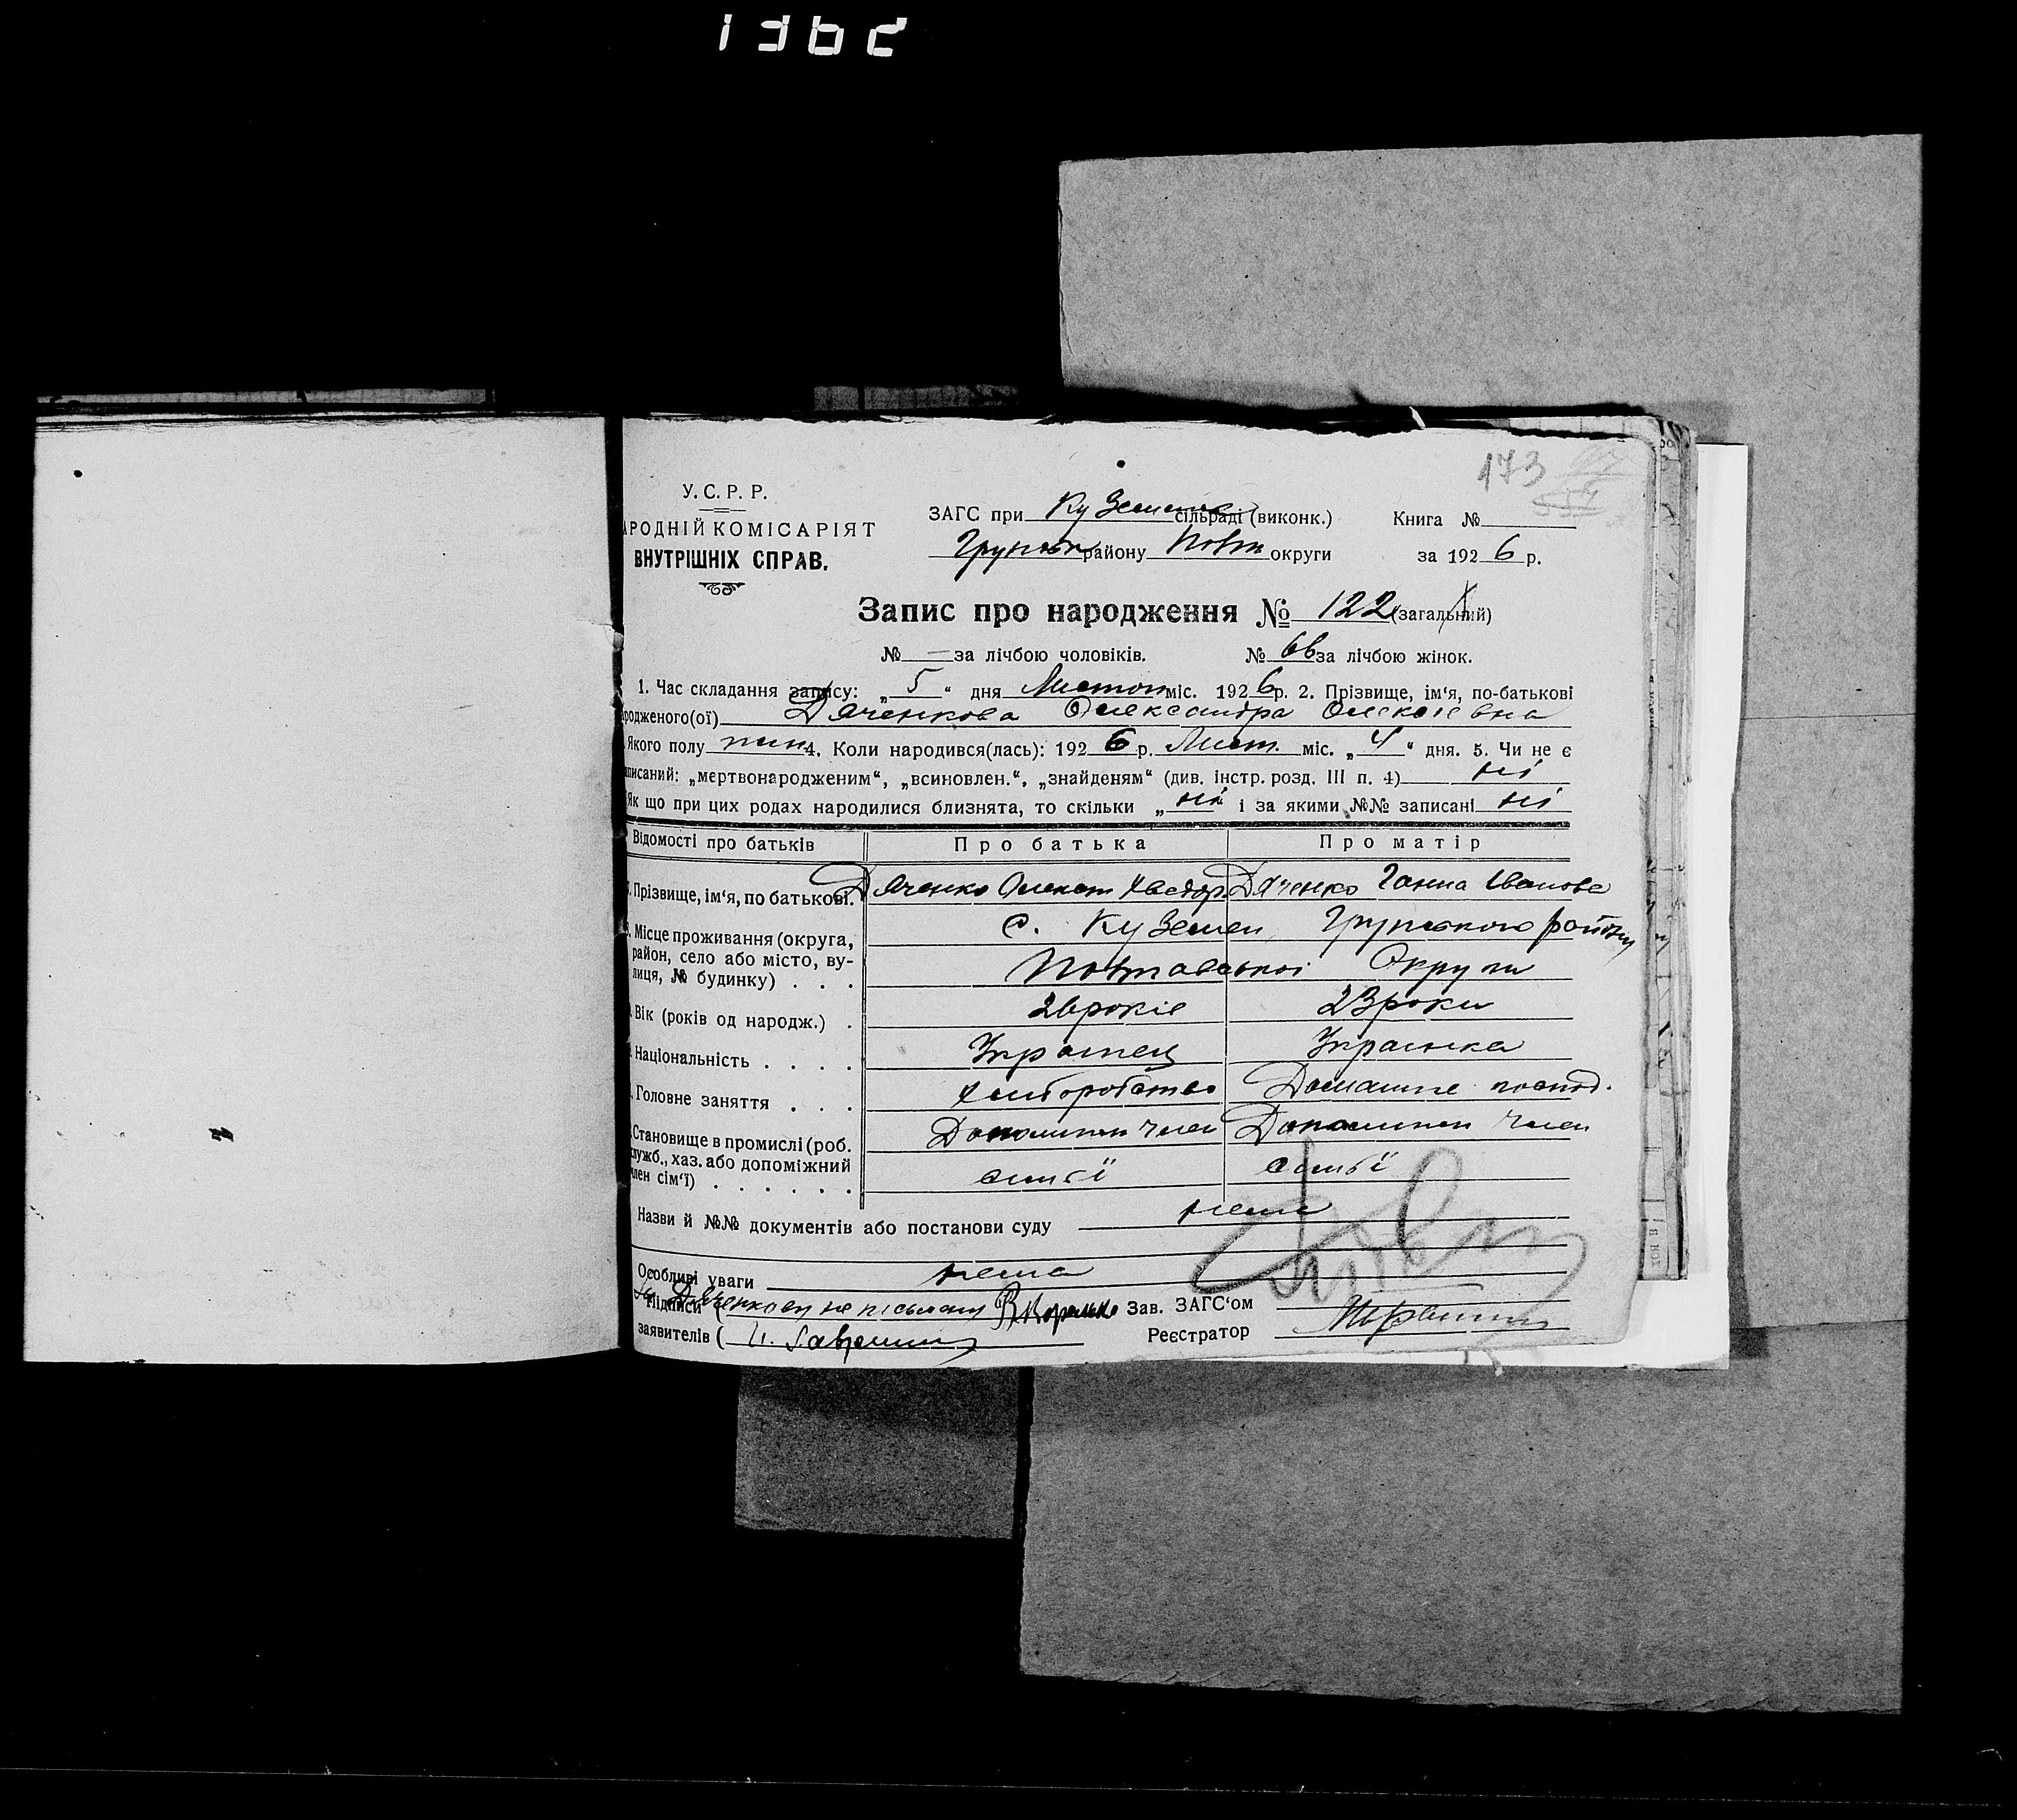 1362
173
У. С. Р. Р.
АРОДНІЙ КОМІСАРІЯТ
ВНУТРІШНІХ СПРАВ.
ЗАГС при Ку Земен сільраді (виконк.) Книга №
Грунськ району Полт округи за 1926 р.
Запис про народження № 122 (загальний)
№ — за лічбою чоловіків. № 66 за лічбою жінок.
1. Час складання запису: „5“ дня Листоп міс. 1926 р. 2. Прізвище, ім‘я, по-батькові
ародженого(ої) Дяченкова Олександра Олексіевна
Якого полу жин 4. Коли народився(лась): 1926 р. Лист. міс. „4“ дня. 5. Чи не є
аписаний: „мертвонародженим“, „всиновлен.“, „знайденям“ (див. інстр. розд. III п. 4) ні
Як що при цих родах народилися близнята, то скільки „ ні і за якими №№ записані ні
Відомості про батьків Про батька Про матір
Прізвище, ім‘я, по батькові. Дяченко Олекст Хведор. Дяченко Ганна Іванова
Місце проживання (округа, с. Ку Земен, Грунського району
район, село або місто, ву- Полтавської Округи
лиця, № будинку) . . .
Вік (років од народж.) . 26 років 23 роки
Національність . . . . Українец Українка
Головне заняття . . . Хліборобство Домашне господ.
Становище в промислі (роб. Допоміжн член Допоміжн член
служб., хаз. або допоміжний
лен сім‘ї) . . . . . . сімьї сімьї
Назви й №№ документів або постанови суду нема
Особливі уваги нема
Підписи ( Дяченкову не письмену Зав. ЗАГС‘ом
заявителів ( Реєстратор